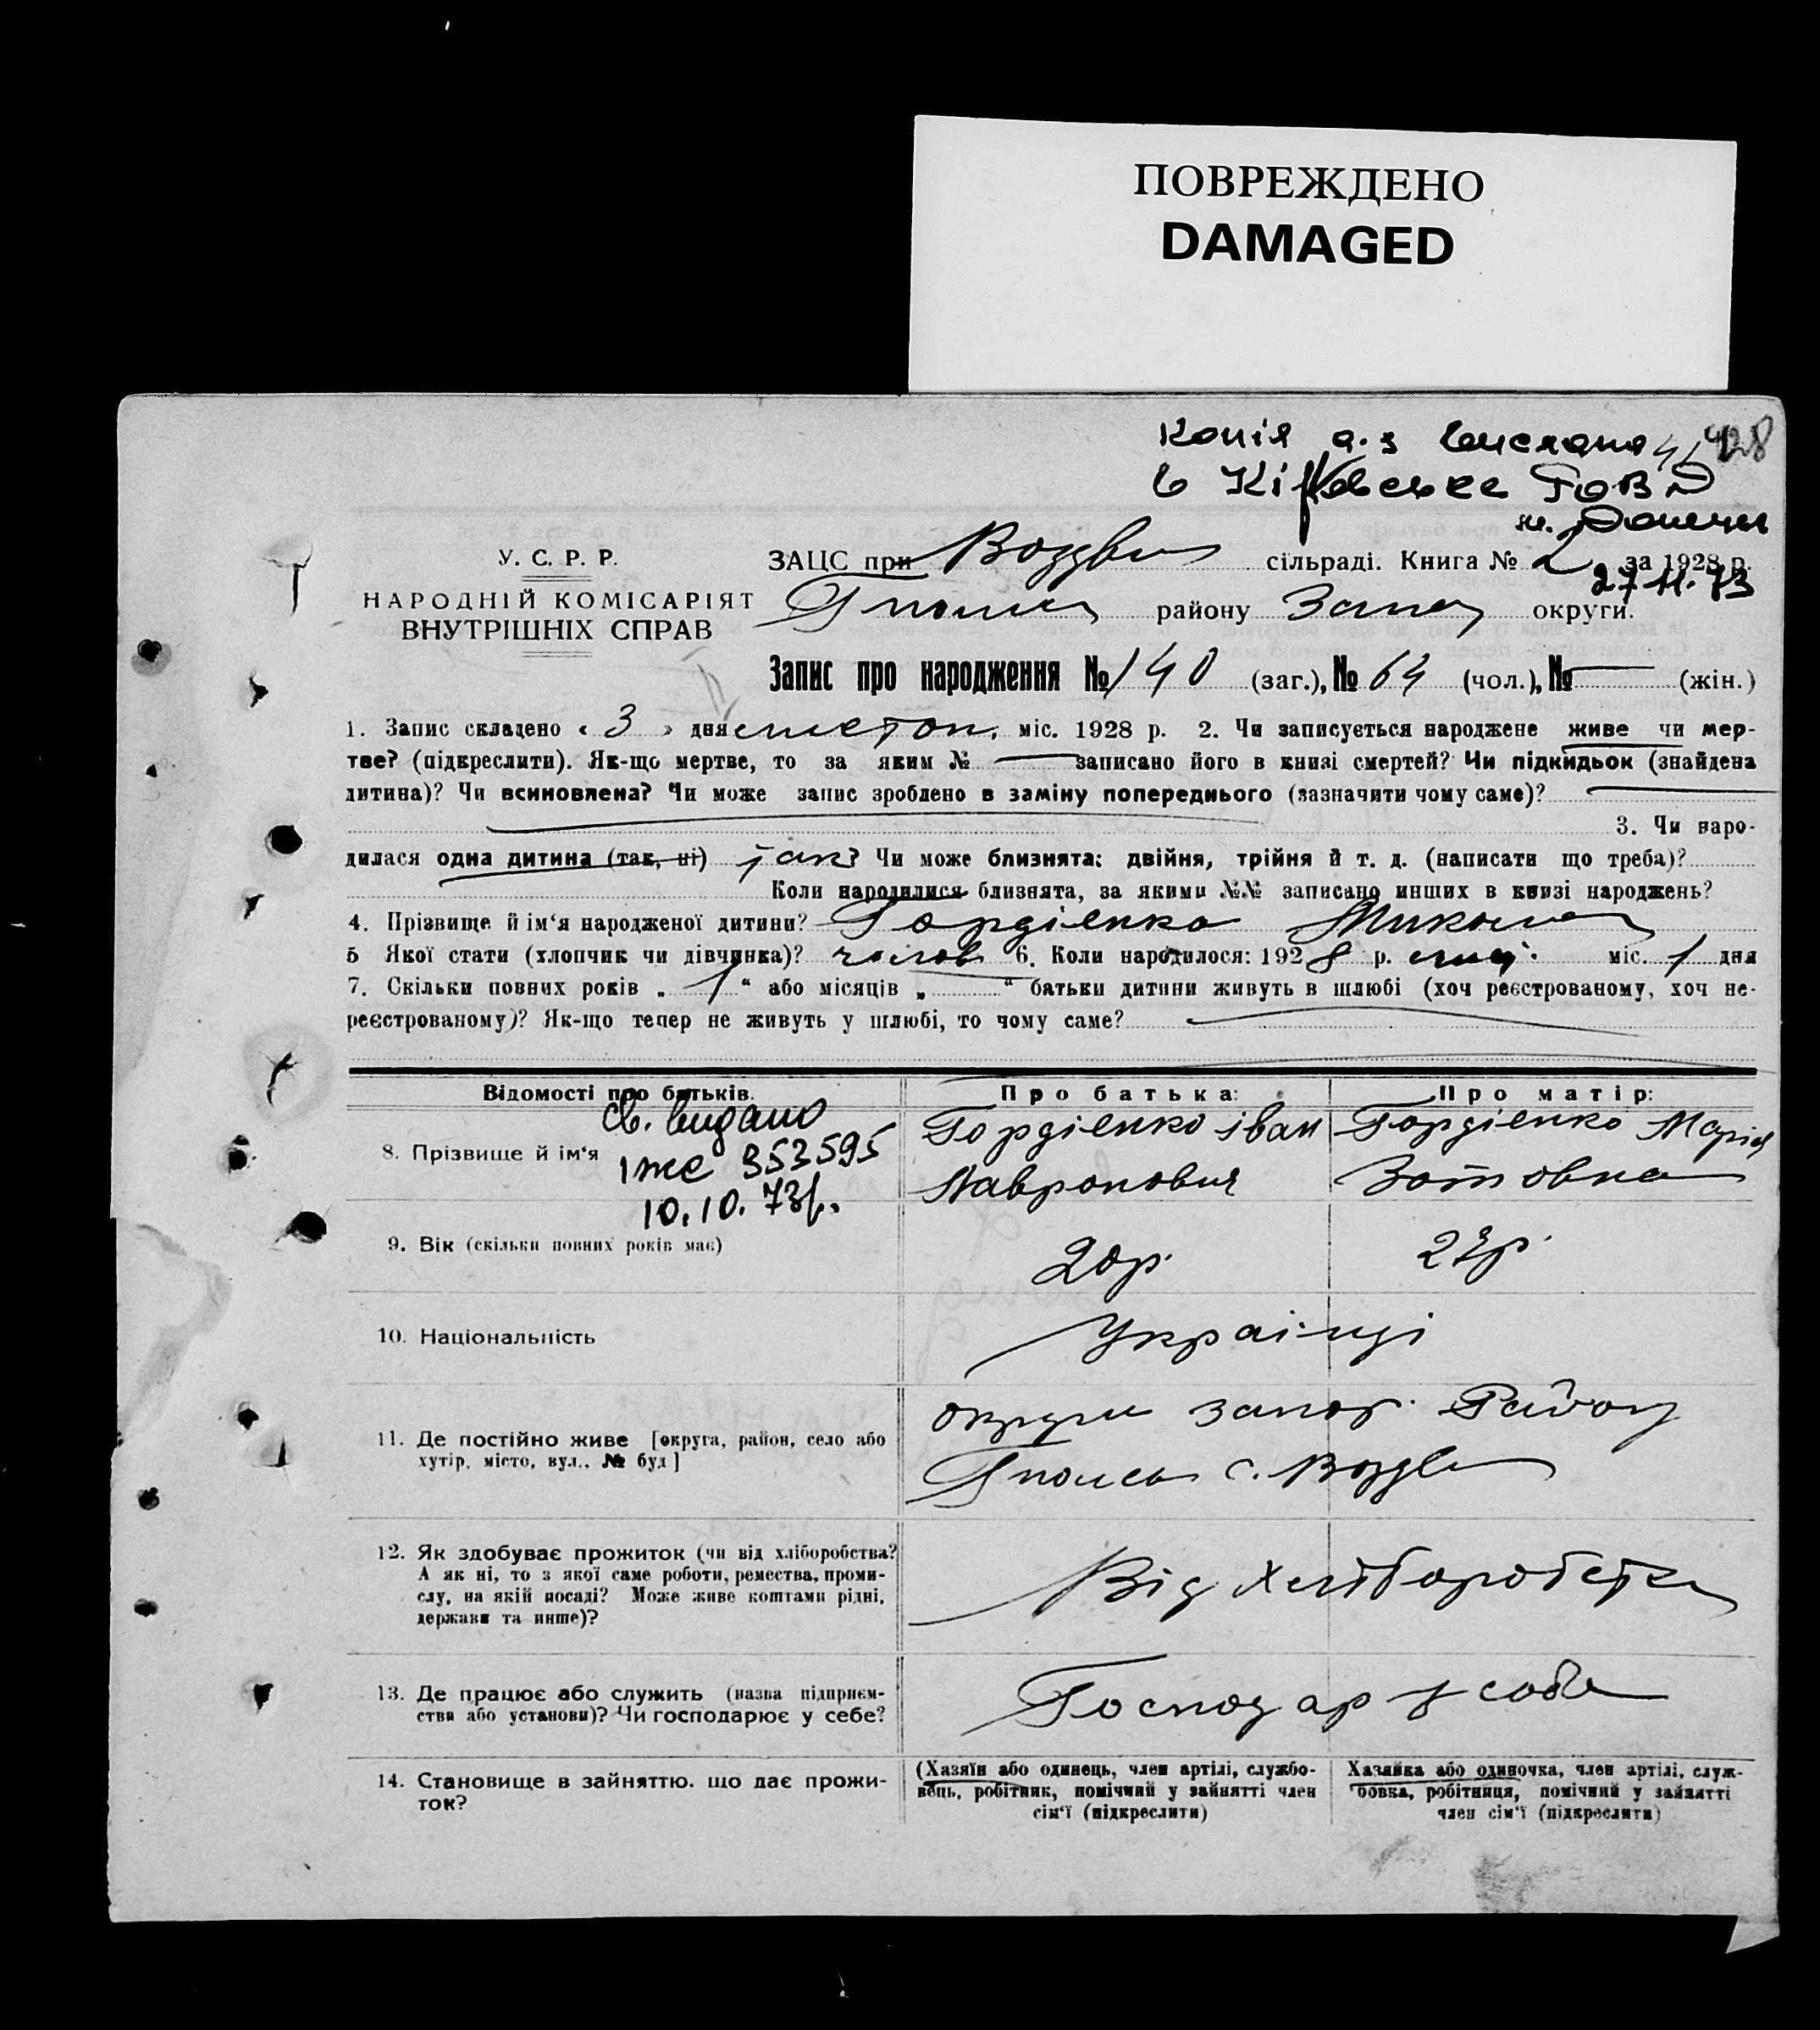 ПОВРЕЖДЕНО
DAMAGED
428
Копія а.з вислана
в Кіровське РОВД
м. Донецьк
27.11.73
У. С. Р. Р.
НАРОДНІЙ КОМІСАРІЯТ
ВНУТРІШНІХ СПРАВ
ЗАЦС при Воздви сільраді. Книга № 2 за 1928 р.
Гполь району Запо округи.
Запис про народження № 140 (заг.), № 64 (чол.), № — (жін.)
1. Запис складено « 3 » дня листоп. міс. 1928 р. 2. Чи записується народжене живе чи мер-
тве? (підкреслити). Як-що мертве, то за яким № — записано його в книзі смертей? Чи підкидьок (знайдена
дитина)? Чи всиновлена? Чи може запис зроблено в заміну попереднього (зазначити чому саме)?
3. Чи наро-
дилася одна дитина (так, ні) так? Чи може близнята: двійня, трійня й т. д. (написати що треба)?
Коли народилися близнята, за якими №№ записано инших в книзі народжень?
4. Прізвище й ім'я народженої дитини? Гордіенко Микола
5 Якої стати (хлопчик чи дівчинка)? чолов 6. Коли народилося: 1928 р. лист. міс. 1 дня
7. Скільки повних років „ 1 “ або місяців „ “ батьки дитини живуть в шлюбі (хоч реєстрованому, хоч не-
реєстрованому)? Як-що тепер не живуть у шлюбі, то чому саме?
Відомості про батьків. Про батька: Про матір:
св. видано
І же 353595
10.10.73р.
8. Прізвище й ім'я Гордіенко іван Гордіенко Марія
Лавронович Зотовна
9. Вік (скільки повних років має) 20р. 22р.
10. Національність Українці
11. Де постійно живе [округа, район, село або
хутір, місто, вул., № буд]
округи запор. Району
Гполь с. Воздв
12. Як здобуває прожиток (чи від хліборобства?
А як ні, то з якої саме роботи, ремества, проми-
слу, на якій посаді? Може живе коштами рідні,
держави та инше)?
Від Хліборобства
13. Де працює або служить (назва підприєм-
ства або установи)? Чи господарює у себе?
Господар у собе
14. Становище в зайняттю, що дає прожи-
ток?
(Хазяїн або одинець, член артілі, службо-
вець, робітник, помічний у зайнятті член
сім'ї (підкреслити)
Хазяйка або одиночка, член артілі, служ-
бовка, робітниця, помічний у зайнятті
член сім'ї (підкреслити)